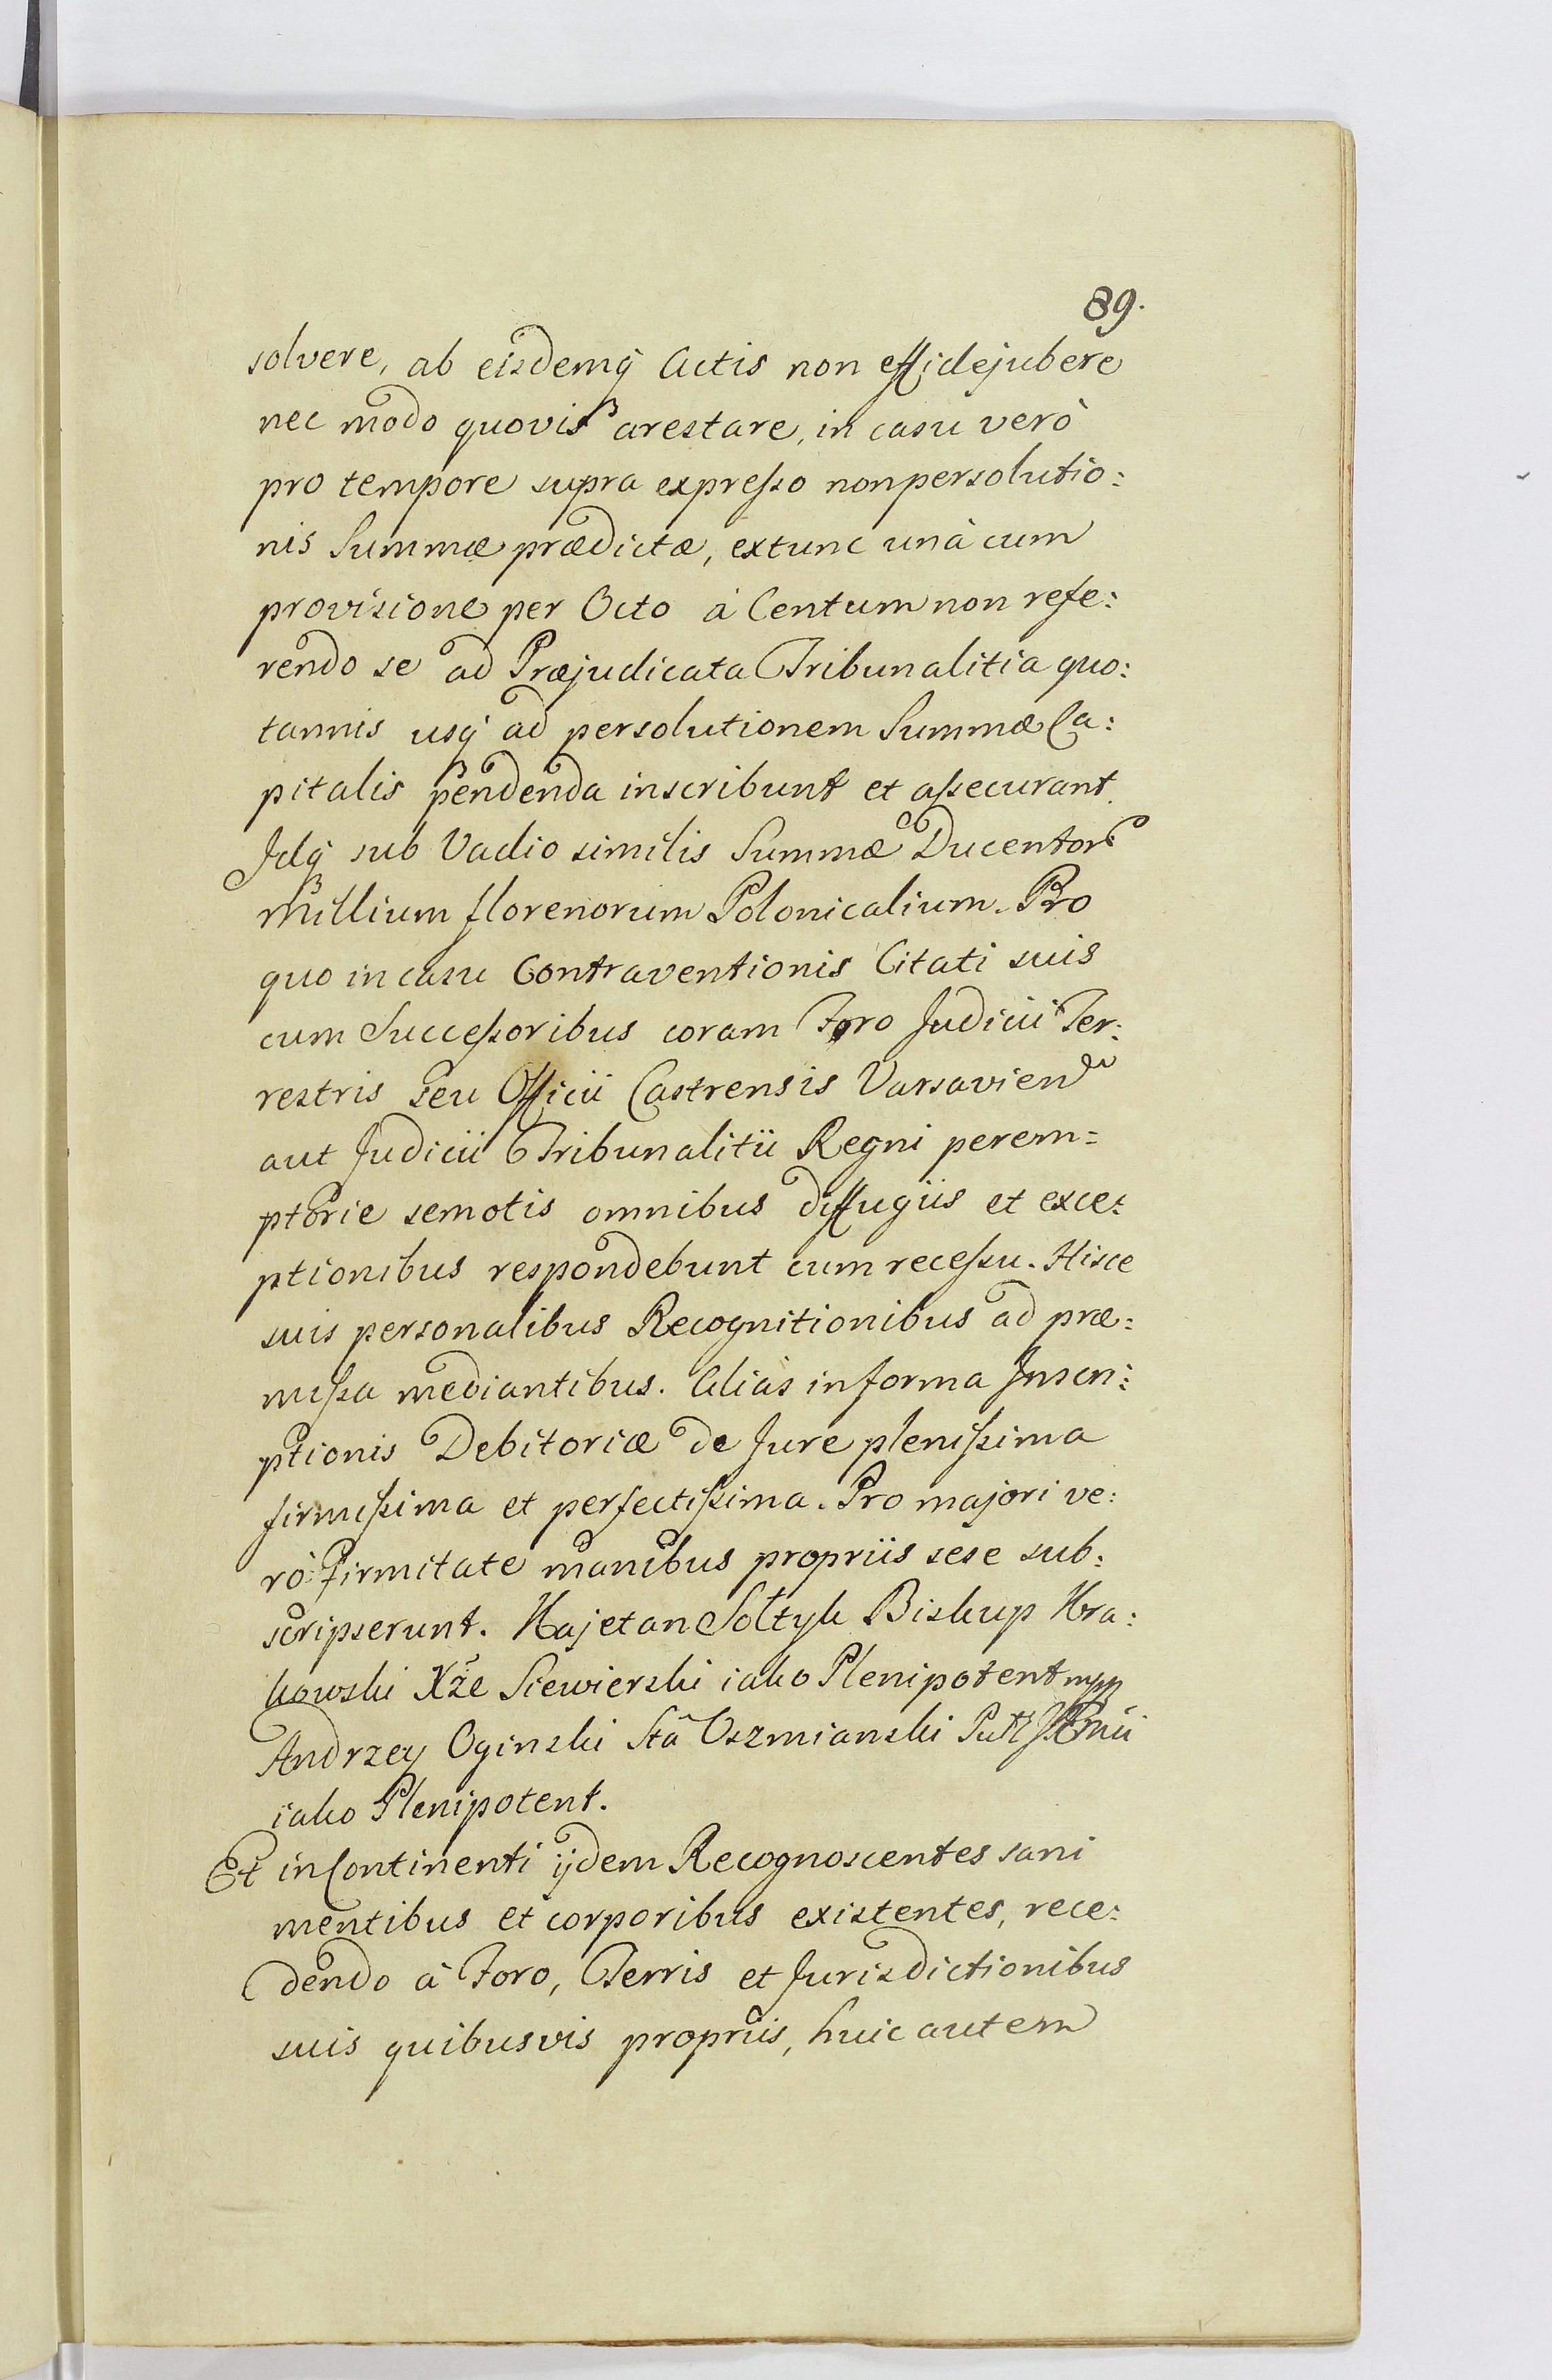 89.
solvere, ab eisdemq́ Actis non effidejubere
nec modo quovis arestare, in casu verò
pro tempore supra expresso nonpersolutio:
nis Summæ prædictæ, extunc unà cum
provisione per Octo à Centum non refe:
rendo se ad Præjudicata Tribunalitia quo:
tannis usq́ ad persolutionem Summæ Ca:
pitalis pendenda inscribunt et assecurant.
Idq́ sub Vadio similis Summæ Ducentor̃
Millium florenorum Polonicalium. Pro
quo in casu Contraventionis Citati suis
cum Successoribus coram Foro Judicii Ter:
restris seu Officii Castrensis Varsavien
aut Judicii Tribunalitii Regni perem=
ptorie semotis omnibus diffugiis et exce:
ptionibus respondebunt cum recessu. Hisce
suis personalibus Recognitionibus ad præ:
missa mediantibus. Aliàs in forma Inscri:
ptionis Debitoriæ de Jure plenissima
firmissima et perfectissima. Pro majori ve:
rò firmitate manibus propriis sese sub:
scripserunt. Kajetan Sołtyk Biskup Kra:
kowski Xże Siewierski iako Plenipotent mpp
Andrzey Oginski Stã Oszmianski
iako Plenipotent.
Et in Continenti ijdem Recognoscentes sani
mentibus et corporibus existentes, rece:
dendo à Foro, Terris et Jurisdictionibus
suis quibusvis propriis, huic autem